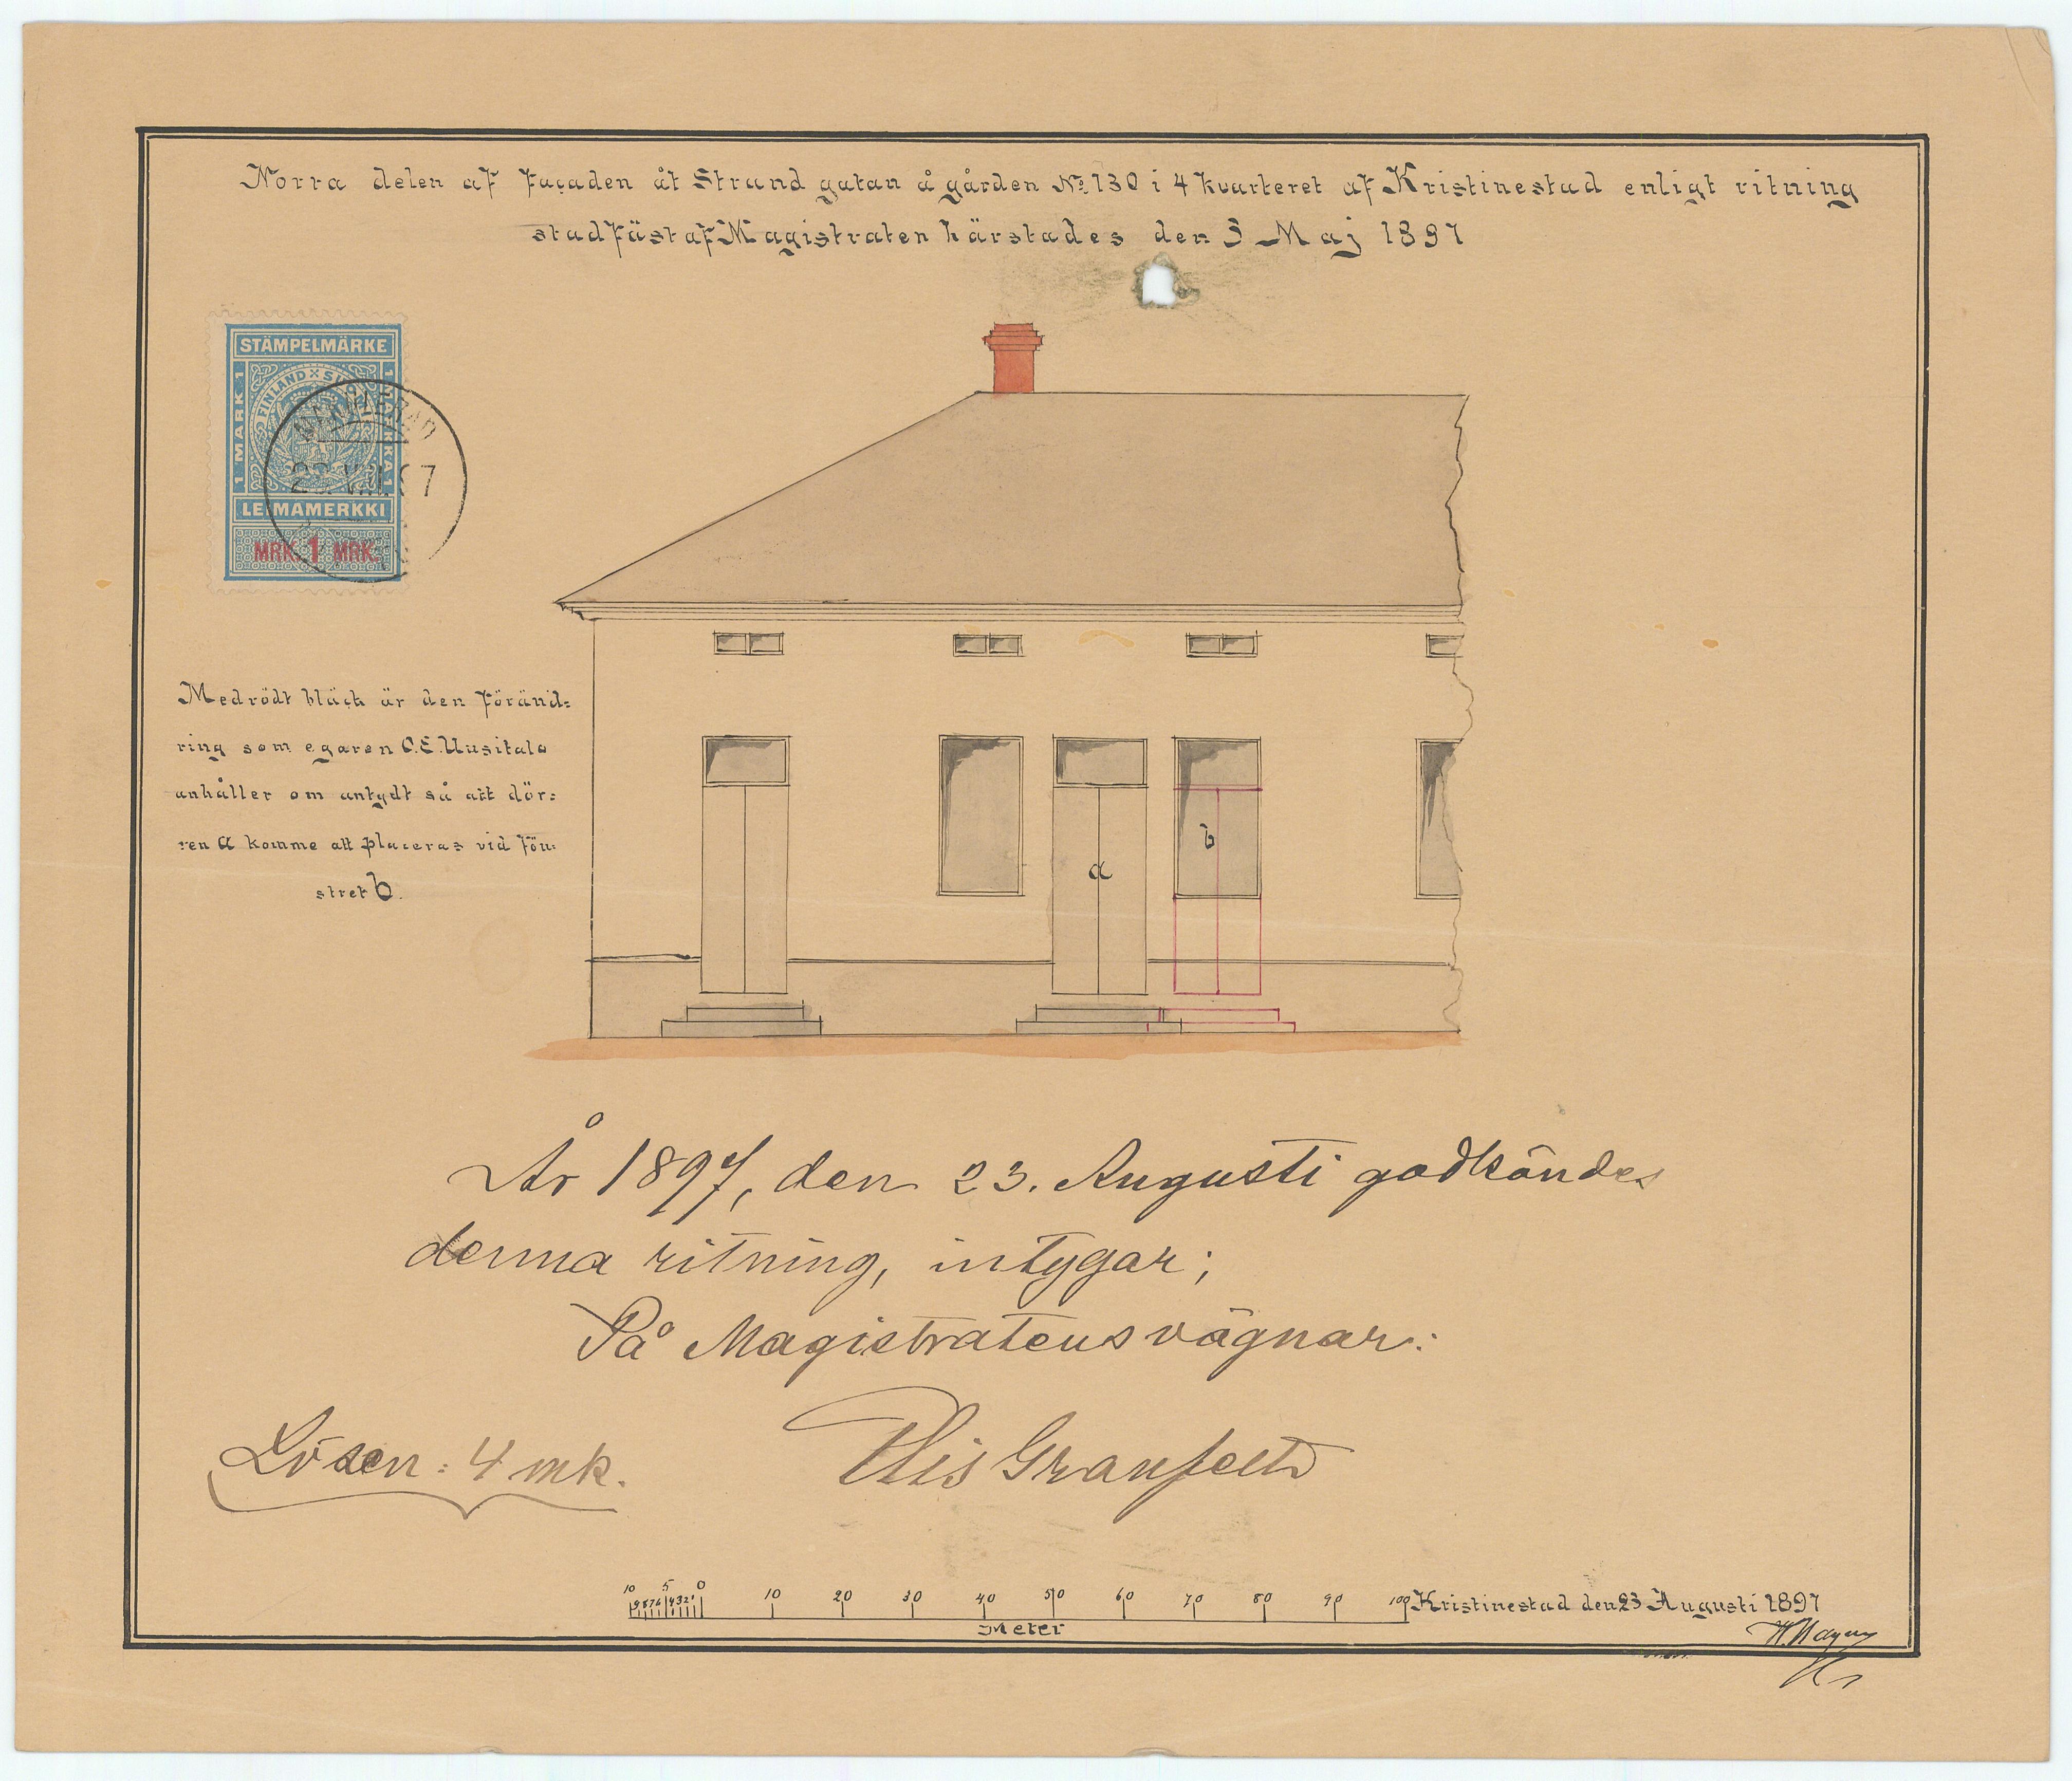 Norra delen af façaden åt Strand gatan å gården No. 130 i 4 kvarteret af Kristinestad enligt ritning
stadfäst af Magistraten härstädes den 3 Maj 1897
STÄMPELMÄRKE
FINLAND
1 MARK 1
1 MARKKA 1
LEIMAMERKKI
MRK. 1 MRK.
Med rödt bläck är den föränd=
ring som egaren C.E. Uusitalo
anhåller om antydt så att dör=
ren a komme att placeras vid fön=
stret b.
a
b
År 1897, den 23. Augusti godkändes
denna ritning, intygar;
På Magistratens vägnar:
Lösen: 4 mk.
Elis Granfelt
10 9 8 7 6 5 4 3 2 1 0 10 20 30 40 50 60 70 80 90 100
Meter
Kristinestad den 23 Augusti 1897